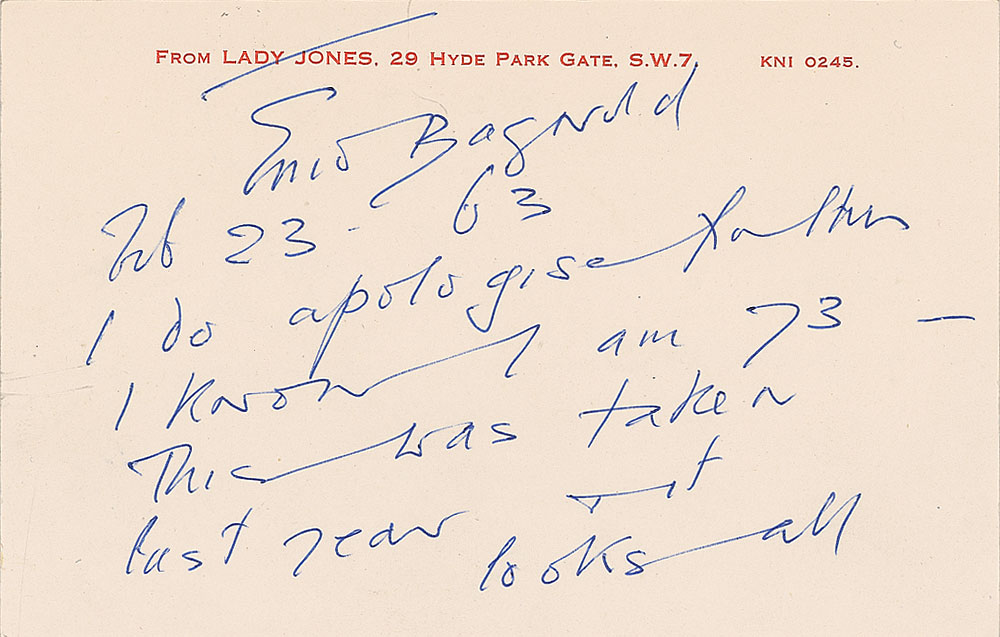 FROM LADY JONES, 29 HYDE PARK GATE, S.W.7. KNI 0245.
Enid Bagnold
Feb 23 - 63
I do apologise
I know I am 73 —
This was taken
last year It
looks all